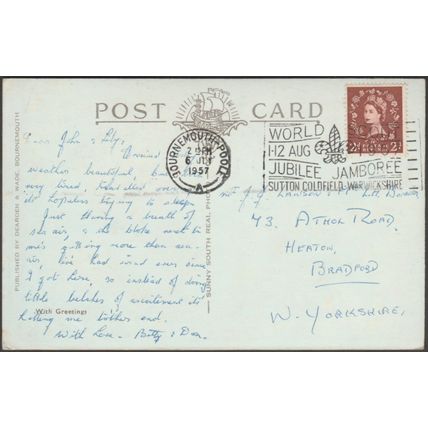 POST CARD
PUBLISHED BY DEARDEN & WADE, BOURNEMOUTH
SUNNY SOUTH REAL PHO
BOURNEMOUTH POOLE
6 JLY
1957
A
WORLD
1-12 AUG
JUBILEE JAMBOREE
SUTTON COLDFIELD WARWICKSHIRE
2½
Dear John & Lily,
Arrived
weather beautiful, but
very tired,
hopeless trying to sleep.
Just having a breath of
sea air, & the bloke next to
me's getting more than sea
air, I've had ever since
I got here, so instead of doing
little of excitement it's
me
With Greetings
With Love. Betty & Don.
43, ATHOL ROAD,
HEATON,
BRADFORD
W. YORKSHIRE,